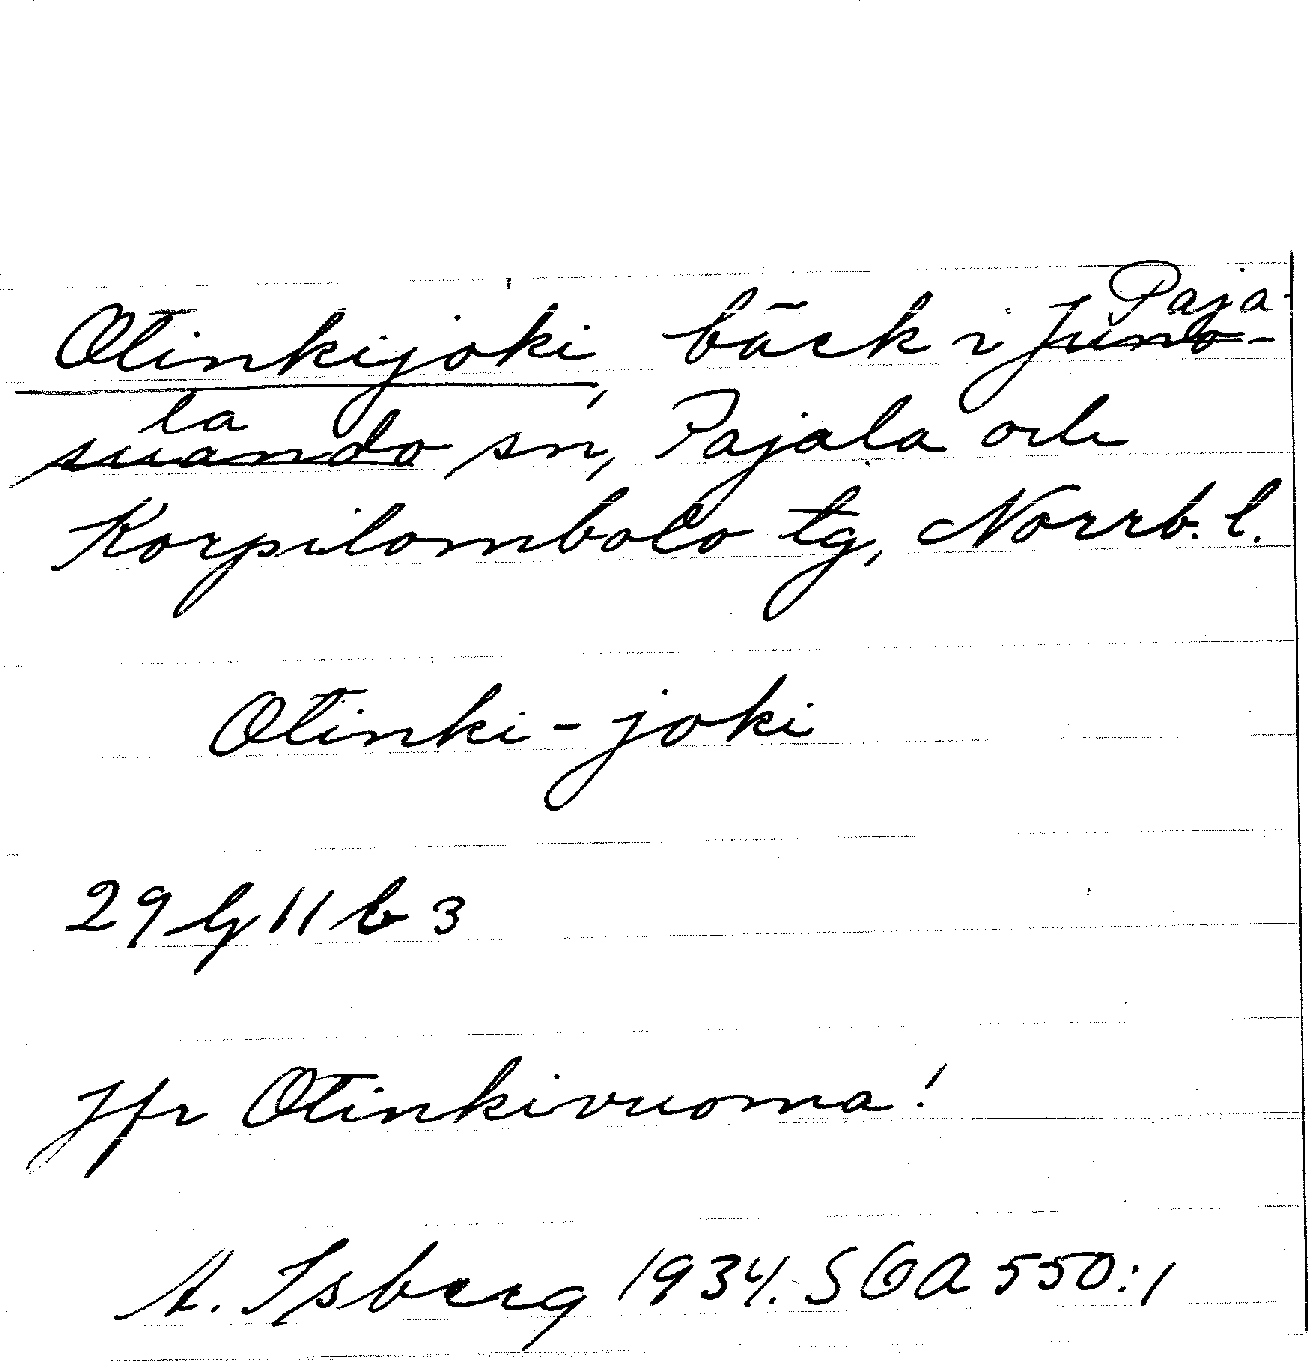 Otinkijoki, bäck i Paja-
Juno-
la
suando sn, Pajala och
Korpilombolo tg, Norrb. l.
Otinki-joki
29 G 11 b 3
Jfr Otinkivuoma!
A. Isberg 1934. SOA 550:1